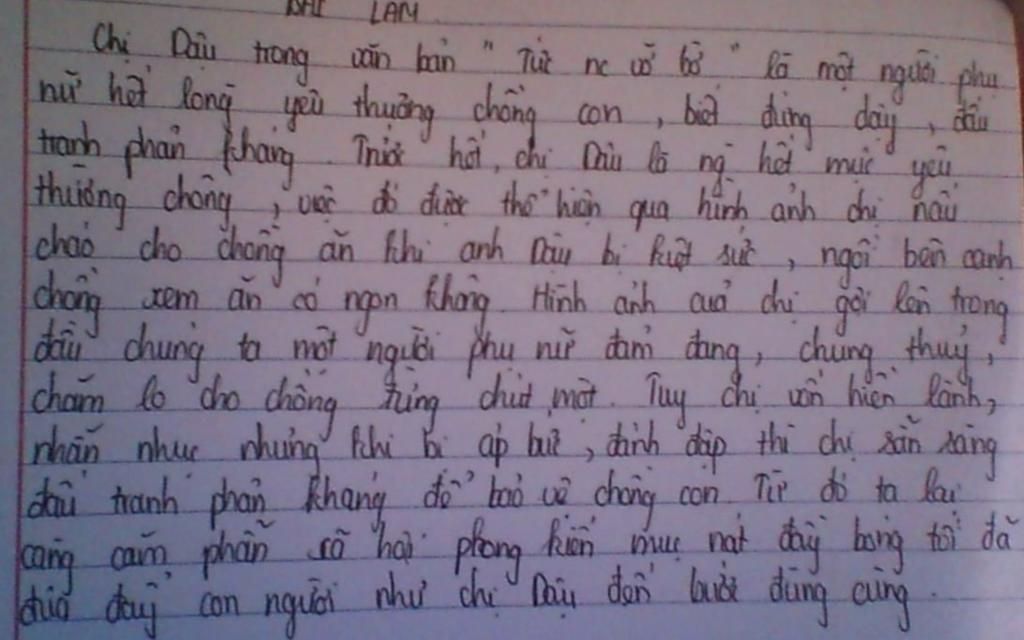 BÀI LÀM
Chị Dậu trong văn bản "Tức nc vỡ bờ" là một người phụ
nữ hết lòng yêu thương chồng con, biết đứng dậy, đấu
tranh phản kháng. Trước hết, chị Dậu là ng hết mực yêu
thương chồng, việc đó được thể hiện qua hình ảnh chị nấu
cháo cho chồng ăn khi anh Dậu bị kiệt sức, ngồi bên cạnh
chồng xem ăn có ngon không. Hình ảnh cuả chị gợi lên trong
đầu chúng ta một người phụ nữ đảm đang, chung thuỷ,
chăm lo cho chồng từng chút một. Tuy chị vốn hiền lành,
nhẫn nhục nhưng khi bị áp bức, đánh đập thì chị sẵn sàng
đấu tranh phản kháng để bảo vệ chồng con. Từ đó ta lại
càng căm phẫn xã hội phong kiến mục nát đầy bóng tối đã
đưa đẩy con người như chị Dậu đến bước đường cùng.